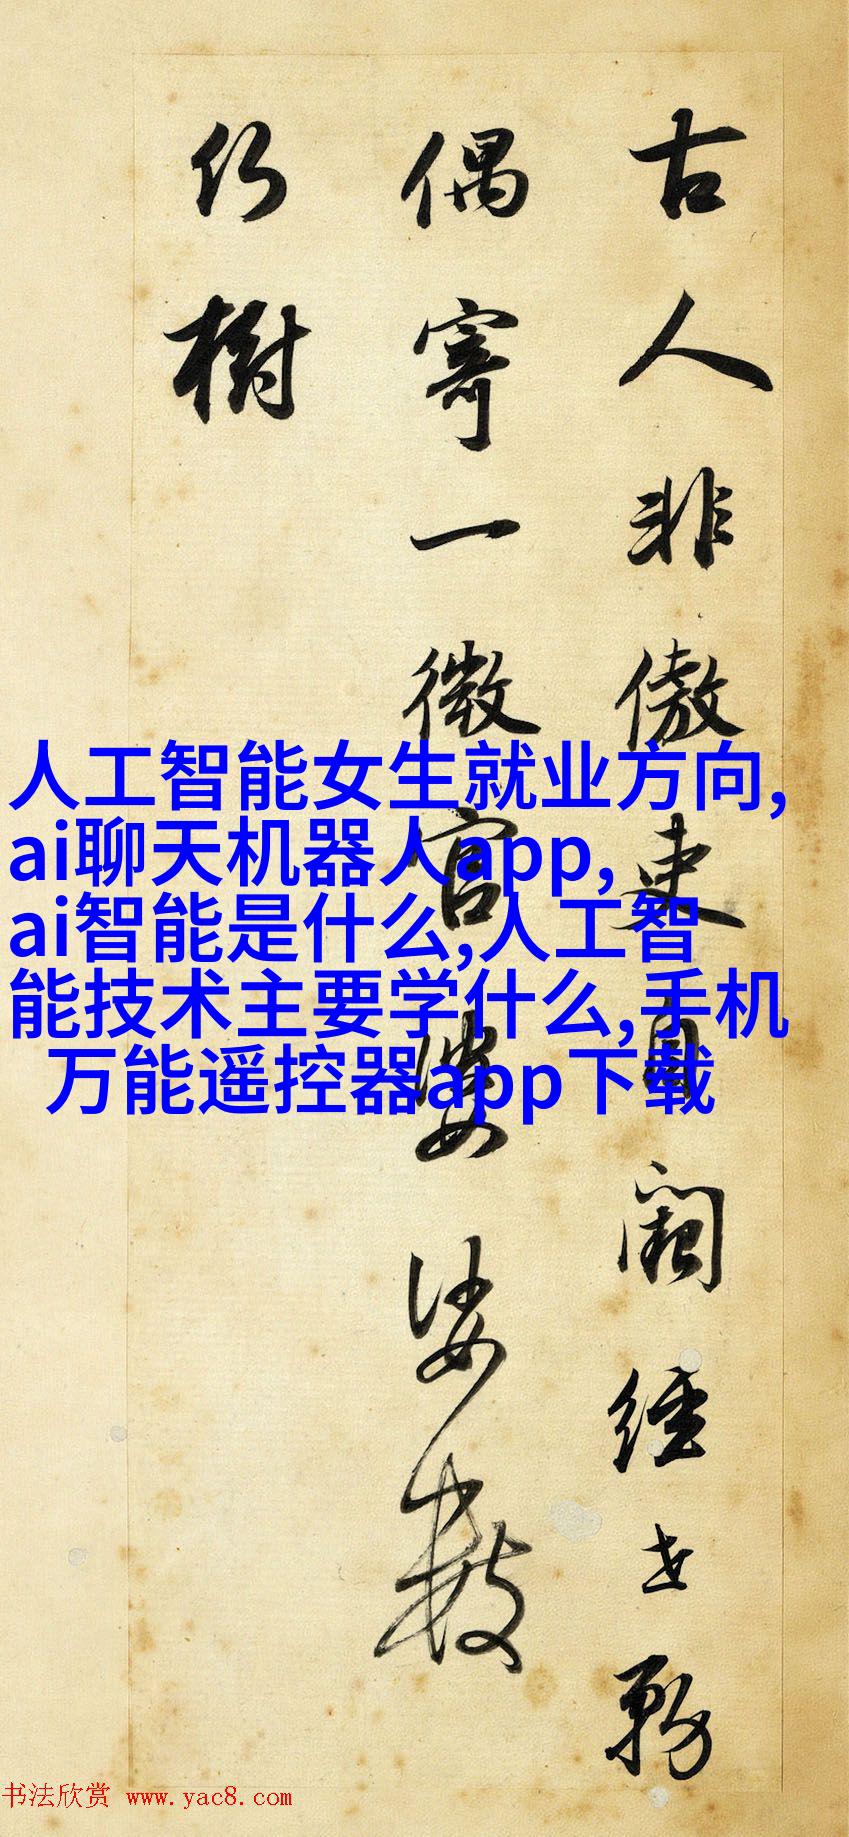 古人非傲吏自闕經世務
偶寄一微官婆娑數
樹
人工智能女生就业方向,
ai聊天机器人app,
ai智能是什么,人工智
能技术主要学什么,手机
万能遥控器app下载
书法欣赏 www.yac8.com